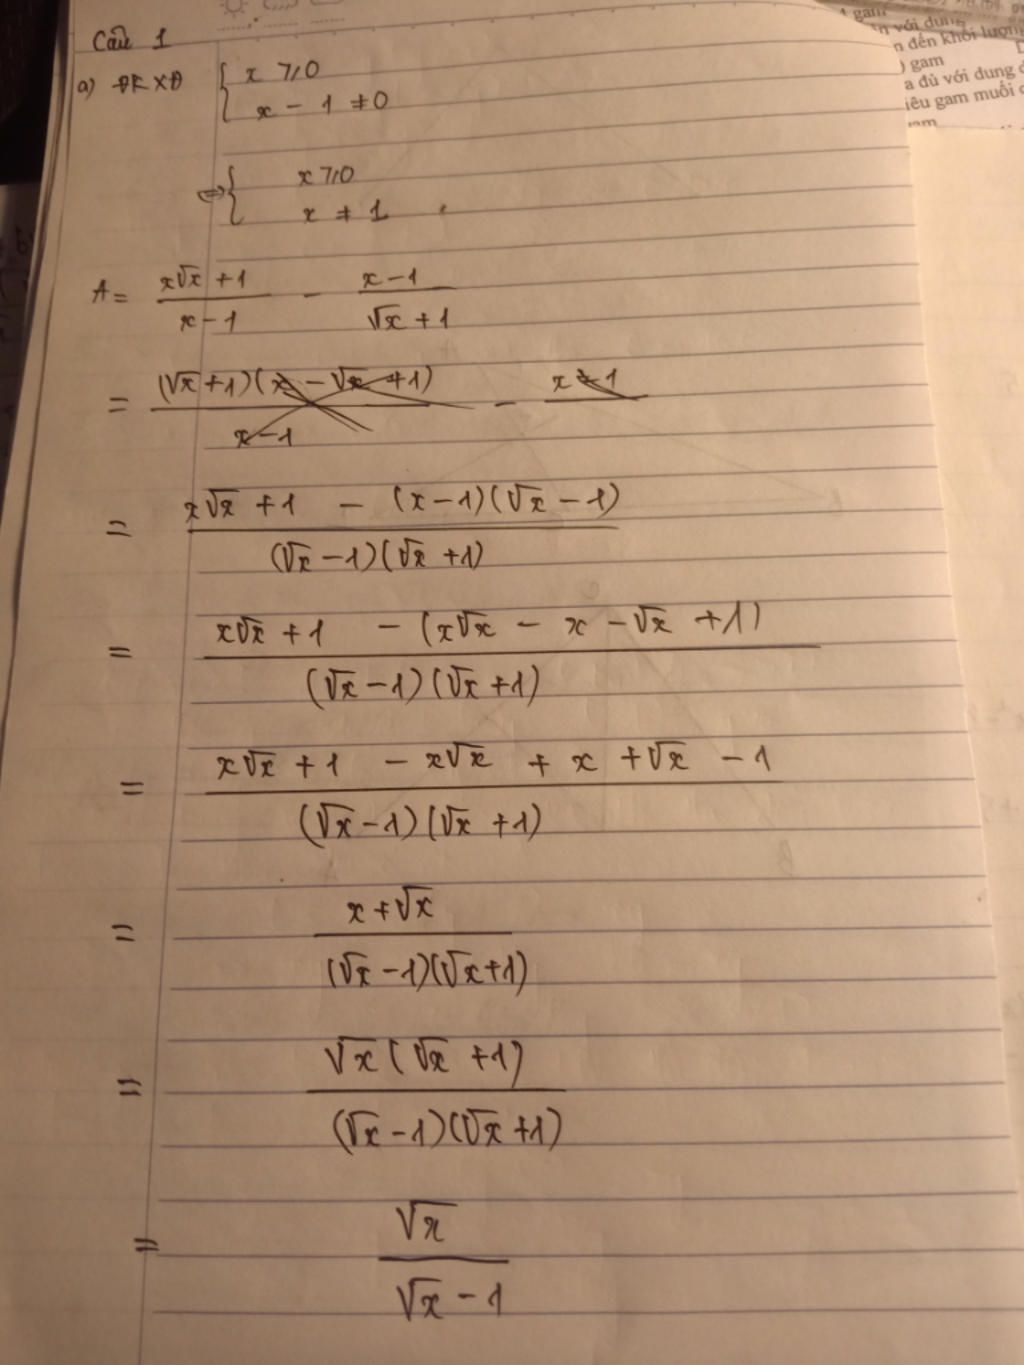 Câu 1
a) ĐKXĐ { x ⩾ 0
x - 1 ≠ 0
⇔ { x ⩾ 0
x ≠ 1
A = (x√x + 1)/(x - 1) - (x - 1)/(√x + 1)
= (√x + 1)(x - √x + 1)/(x - 1) - x - 1
= (x√x + 1 - (x - 1)(√x - 1))/((√x - 1)(√x + 1))
= (x√x + 1 - (x√x - x - √x + 1))/((√x - 1)(√x + 1))
= (x√x + 1 - x√x + x + √x - 1)/((√x - 1)(√x + 1))
= (x + √x)/((√x - 1)(√x + 1))
= (√x(√x + 1))/((√x - 1)(√x + 1))
= √x/(√x - 1)
gam
với dung
đến khối lượng
) gam
a đủ với dung
iêu gam muối